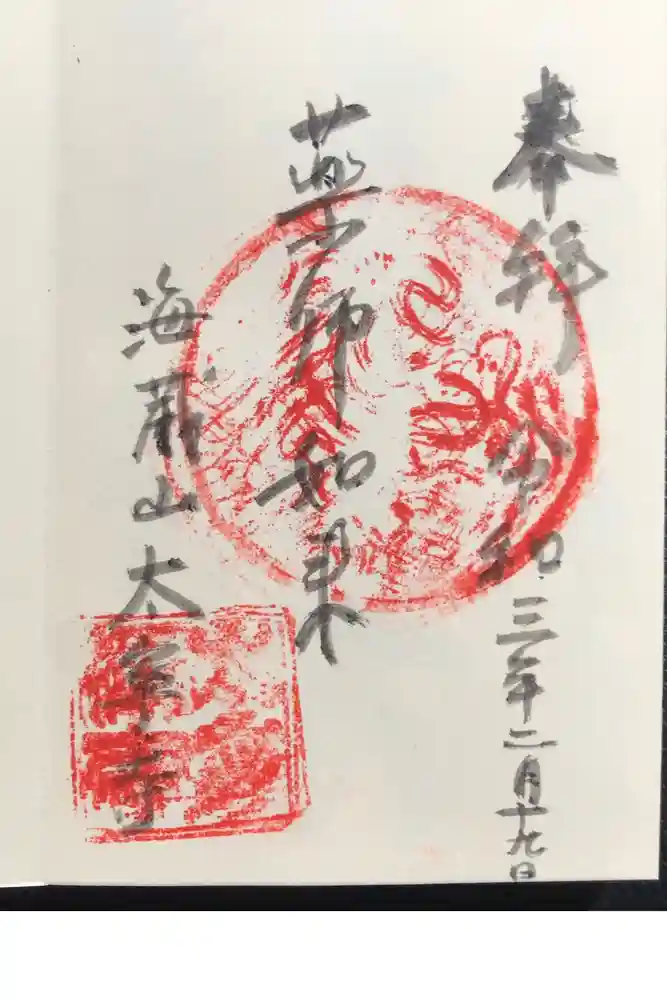 奉拝 令和三年二月十九日
薬師如来
海雁山太宰寺